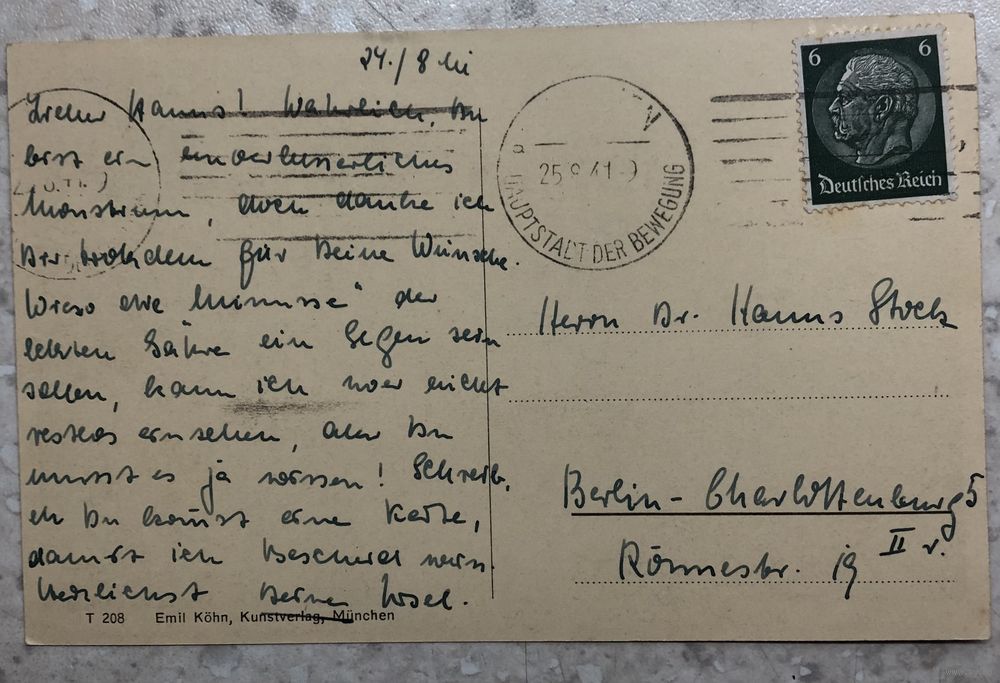 24./8 
Lieber Hanns! Wahrlich, Du
bist ein unverbesserliches
Monstrum, doch danke ich
Dir trotzdem für Deine Wünsche.
Wieso die "
der
letzten Jahre ein Segen sein
sollen, kann ich zwar nicht
restlos einsehen, aber Du
musst es ja wissen! Schreib,
eh Du kommst eine Karte,
damit ich Bescheid weiss.
Herzlichst Deine
T 208 Emil Köhn, Kunstverlag, München
25.8.41.-9
HAUPTSTADT DER BEWEGUNG
6 6
Deutsches Reich
Herrn Dr. Hanns Stock
Berlin-Charlottenburg 5
Rönnestr. 19 II r.